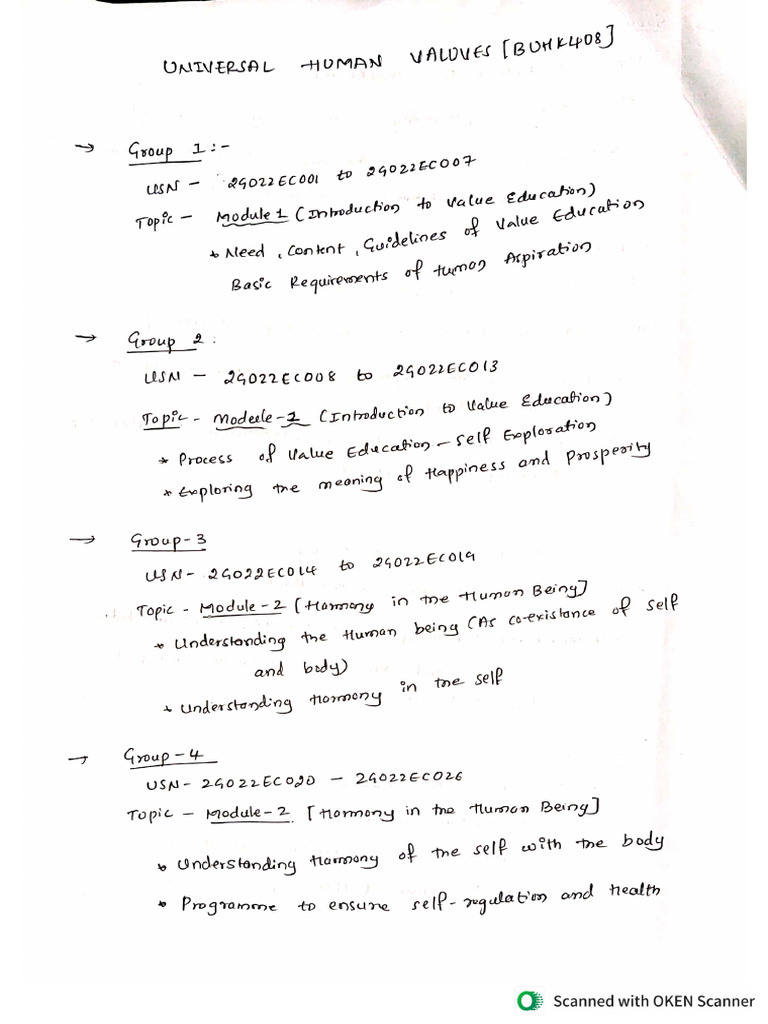 UNIVERSAL HUMAN VALUVES [BUHK408]
→ Group 1:-
USN - 2GO22EC001 to 2GO22EC007
Topic - Module 1 (Introduction to Value Education)
* Need, Content, Guidelines of Value Education
Basic Requirements of Human Aspiration
→ Group 2:
USN - 2GO22EC008 to 2GO22EC013
Topic - Module-1 (Introduction to Value Education)
* Process of Value Education - Self Exploration
* Exploring the meaning of Happiness and Prosperity
→ Group-3
USN- 2GO22EC014 to 2GO22EC019
Topic - Module-2 [Harmony in the Human Being]
* Understanding the Human being (As co-existance of self
and body)
* Understanding Harmony in the self
→ Group-4
USN- 2GO22EC020 - 2GO22EC026
Topic - Module-2 [Harmony in the Human Being]
* Understanding Harmony of the self with the body
* Programme to ensure self-regulation and health
Scanned with OKEN Scanner